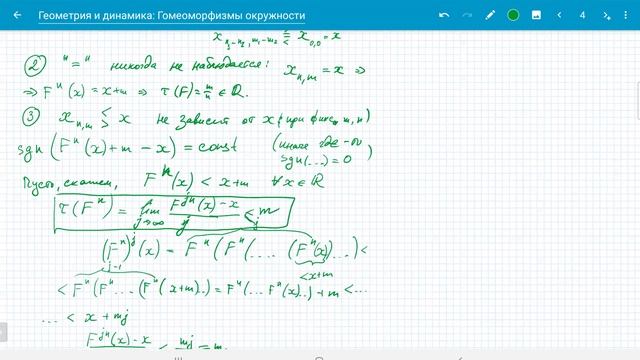 Геометрия и динамика: Гомеоморфизмы окружности
4
x_{n_1-n_2, m_1-m_2} ⋚ x_{0,0} = x
② "=" никогда не наблюдается: x_{n,m} = x ⇒
⇒ F^n(x) = x+m ⇒ τ(F) = m/n ∈ Q.
③ x_{n,m} ≶ x не зависит от x (при фикс. m, n)
sgn(F^n(x)+m-x) = const (иначе где-то sgn(...) = 0)
Пусть, скажем, F^n(x) < x+m ∀x∈R
τ(F^n) = lim_{j→∞} (F^{jn}(x)-x)/j ≤ m
(F^n)^j(x) = F^n(F^n(.... (F^n(x))...) <
<x+m
j-1
< F^n(F^n...(F^n(x+m)..) = F^n(...F^n(x)..)+m <...
... < x+mj
F^{jn}(x)-x < mj = m